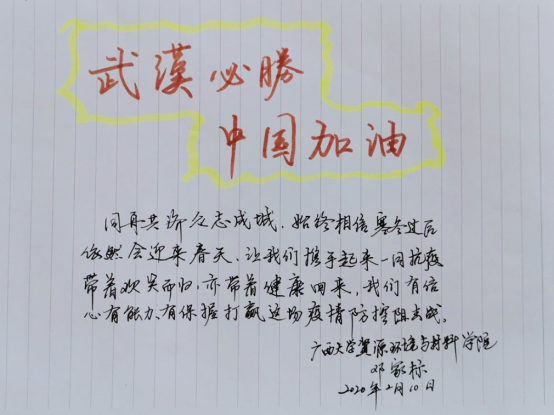 武漢必勝
中国加油
同舟共济众志成城，始终相信寒冬过后
依然会迎来春天，让我们携手起来一同抗疫
带着欢笑而归，亦带着健康回来，我们有信
心有能力、有保据打赢这场疫情防控阻击战。
广西大学資源环境与材料学院
邓家标
2020年2月10日